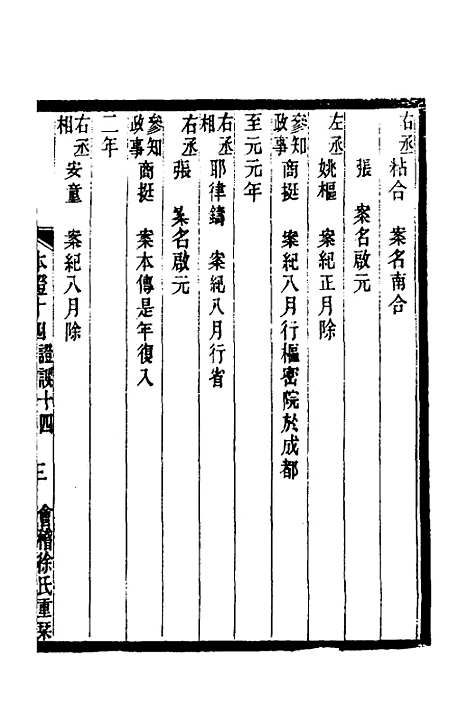 右丞 粘合 案名南合
張 案名啟元
左丞 姚樞 案紀正月除
參知政事 商挺 案紀八月行樞密院於成都
至元元年
右丞相 耶律鑄 案紀八月行省
右丞 張 案名啟元
參知政事 商挺 案本傳是年復入
二年
右丞相 安童 案紀八月除
本證十四 證誤十四 三 會稽徐氏重栞